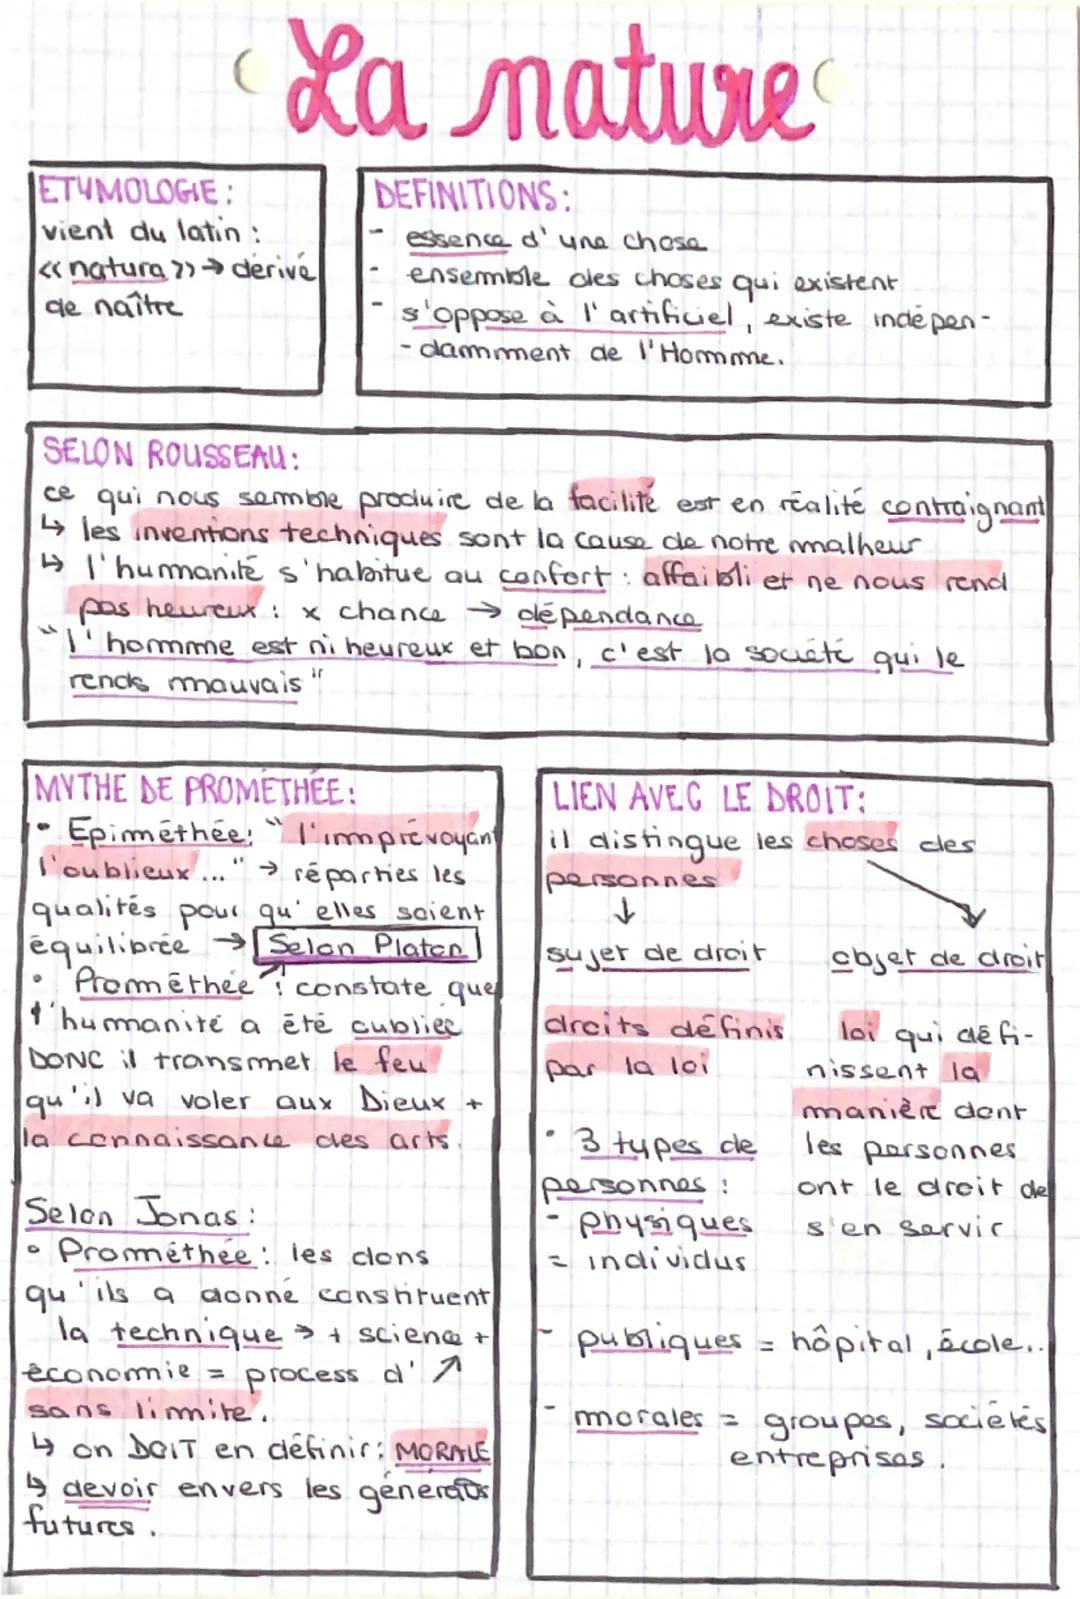 La nature
ETYMOLOGIE :
vient du latin :
« natura » → dérivé
de naître
DEFINITIONS :
- essence d'une chose
- ensemble des choses qui existent
- s'oppose à l'artificiel, existe indépen-
- damment de l'Homme.
SELON ROUSSEAU :
ce qui nous semble produire de la facilité est en réalité contraignant
↳ les inventions techniques sont la cause de notre malheur
↳ l'humanité s'habitue au confort : affaibli et ne nous rend
pas heureux : x chance → dépendance
"l'homme est ni heureux et bon, c'est la société qui le
rends mauvais"
MYTHE DE PROMÉTHÉE :
• Epiméthée: "l'imprévoyant
l'oublieux ..." → réparties les
qualités pour qu'elles soient
équilibrée → Selon Platon
• Prométhée : constate que
l'humanité a été oubliée
DONC il transmet le feu
qu'il va voler aux Dieux +
la connaissance des arts.
Selon Jonas :
• Prométhée : les dons
qu'ils a donné constituent
la technique → + science +
économie = process d' ↗
sans limite.
↳ on DOIT en définir : MORALE
↳ devoir envers les générations
futures.
LIEN AVEC LE DROIT :
il distingue les choses des
personnes
↓
sujet de droit
objet de droit
droits définis
par la loi
loi qui défi-
nissent la
manière dont
les personnes
ont le droit de
s'en servir
• 3 types de
personnes :
- physiques
= individus
- publiques = hôpital, école..
- morales = groupes, sociétés
entreprises.